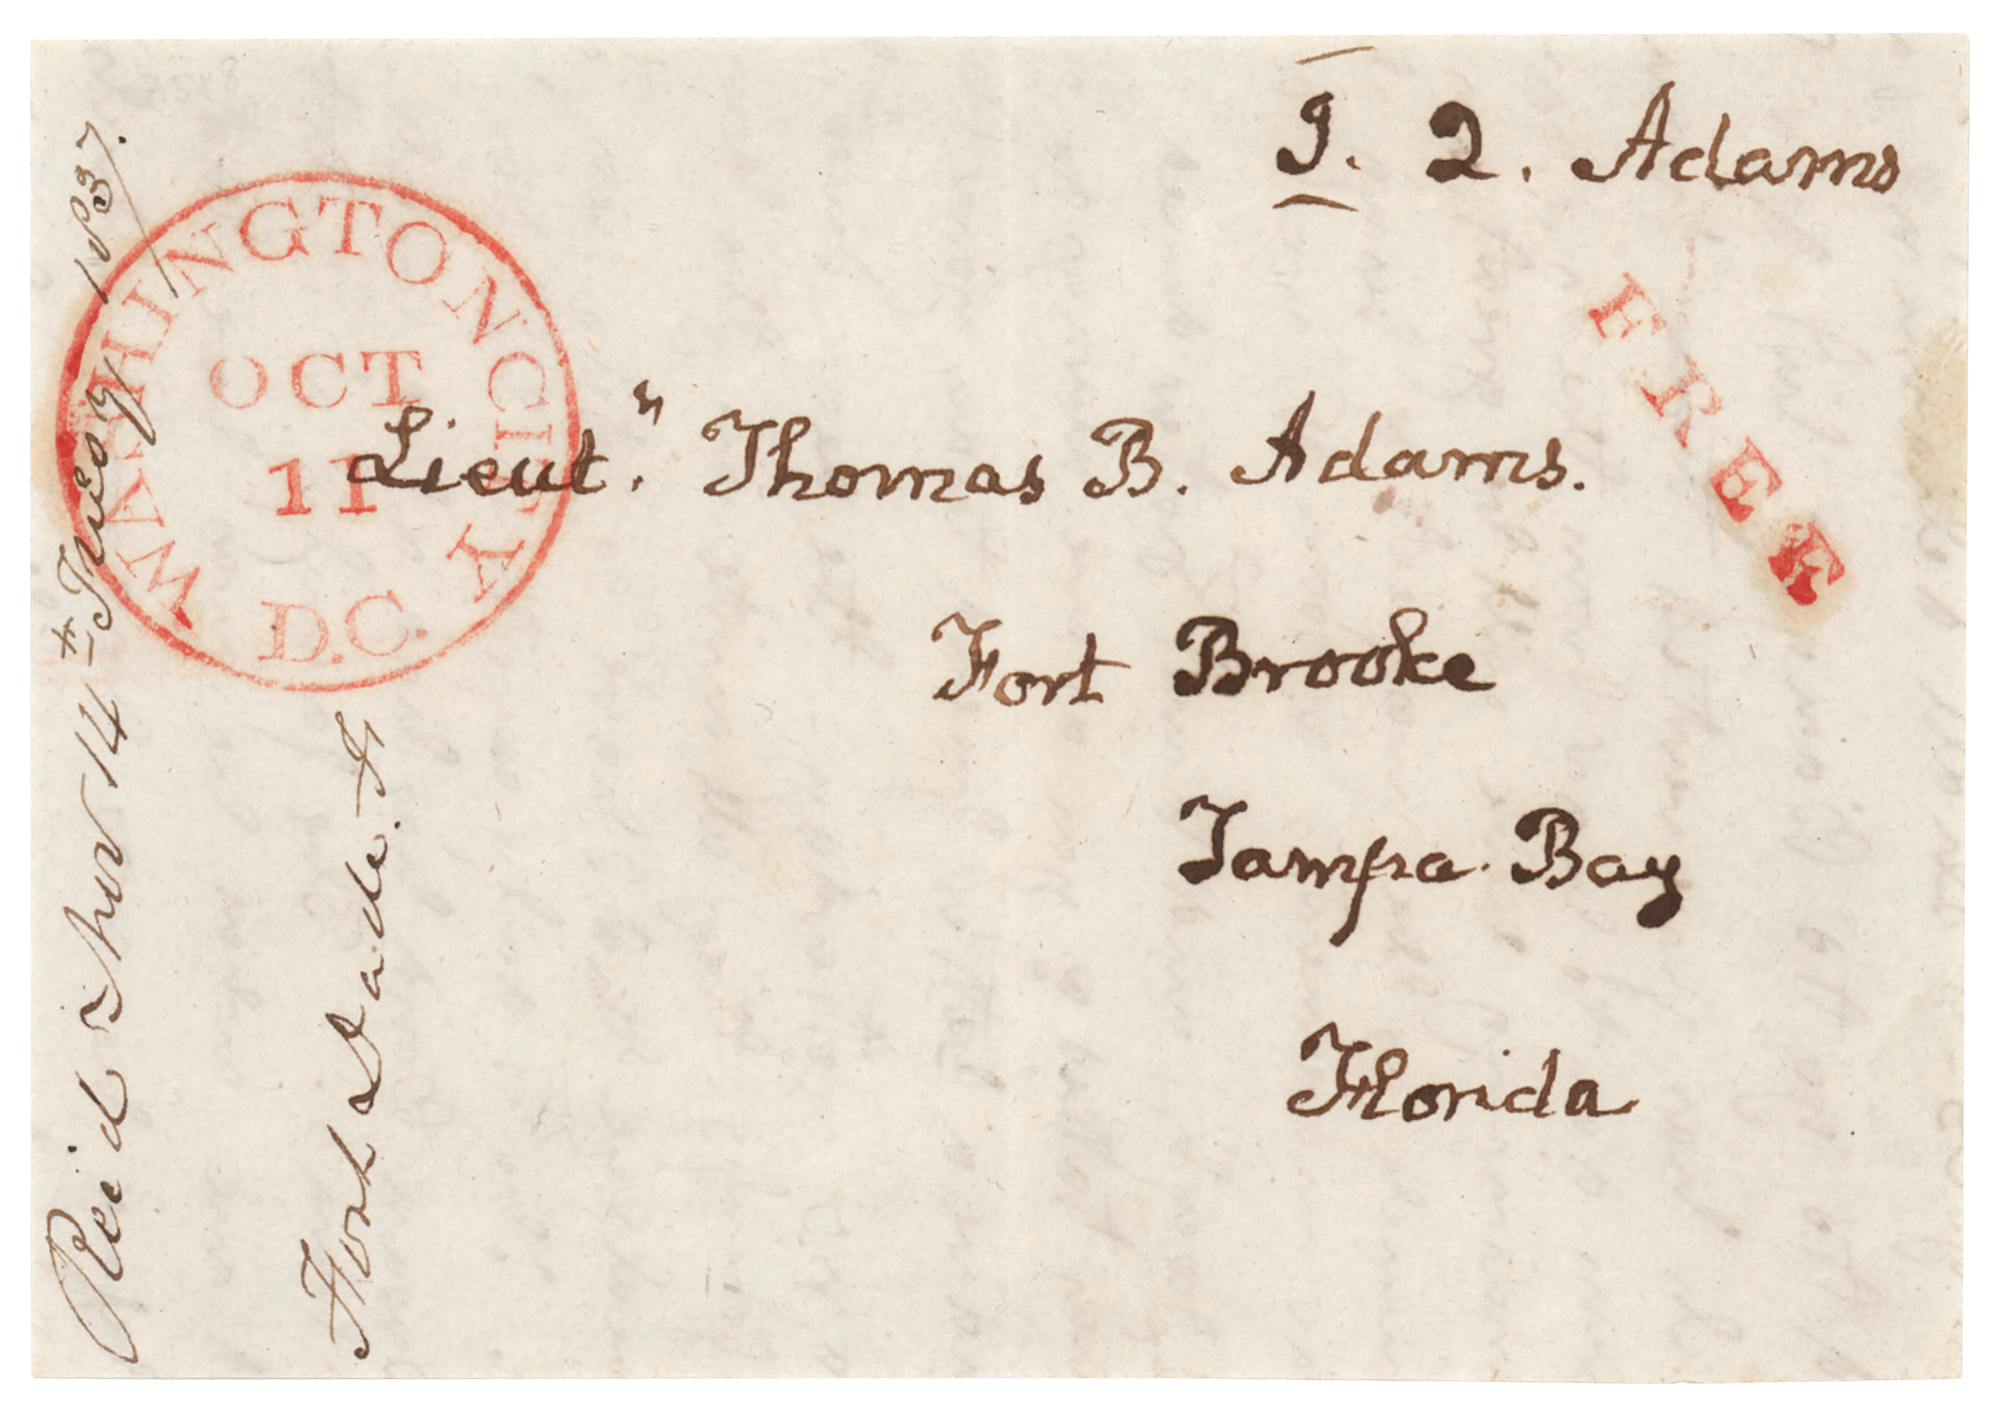 J. Q. Adams
FREE
WASHINGTON CITY
D.C.
OCT
11
Lieut." Thomas B. Adams.
Fort Brooke
Tampa Bay
Florida
Recid Nov 14th 1837.
Fort Dade. F